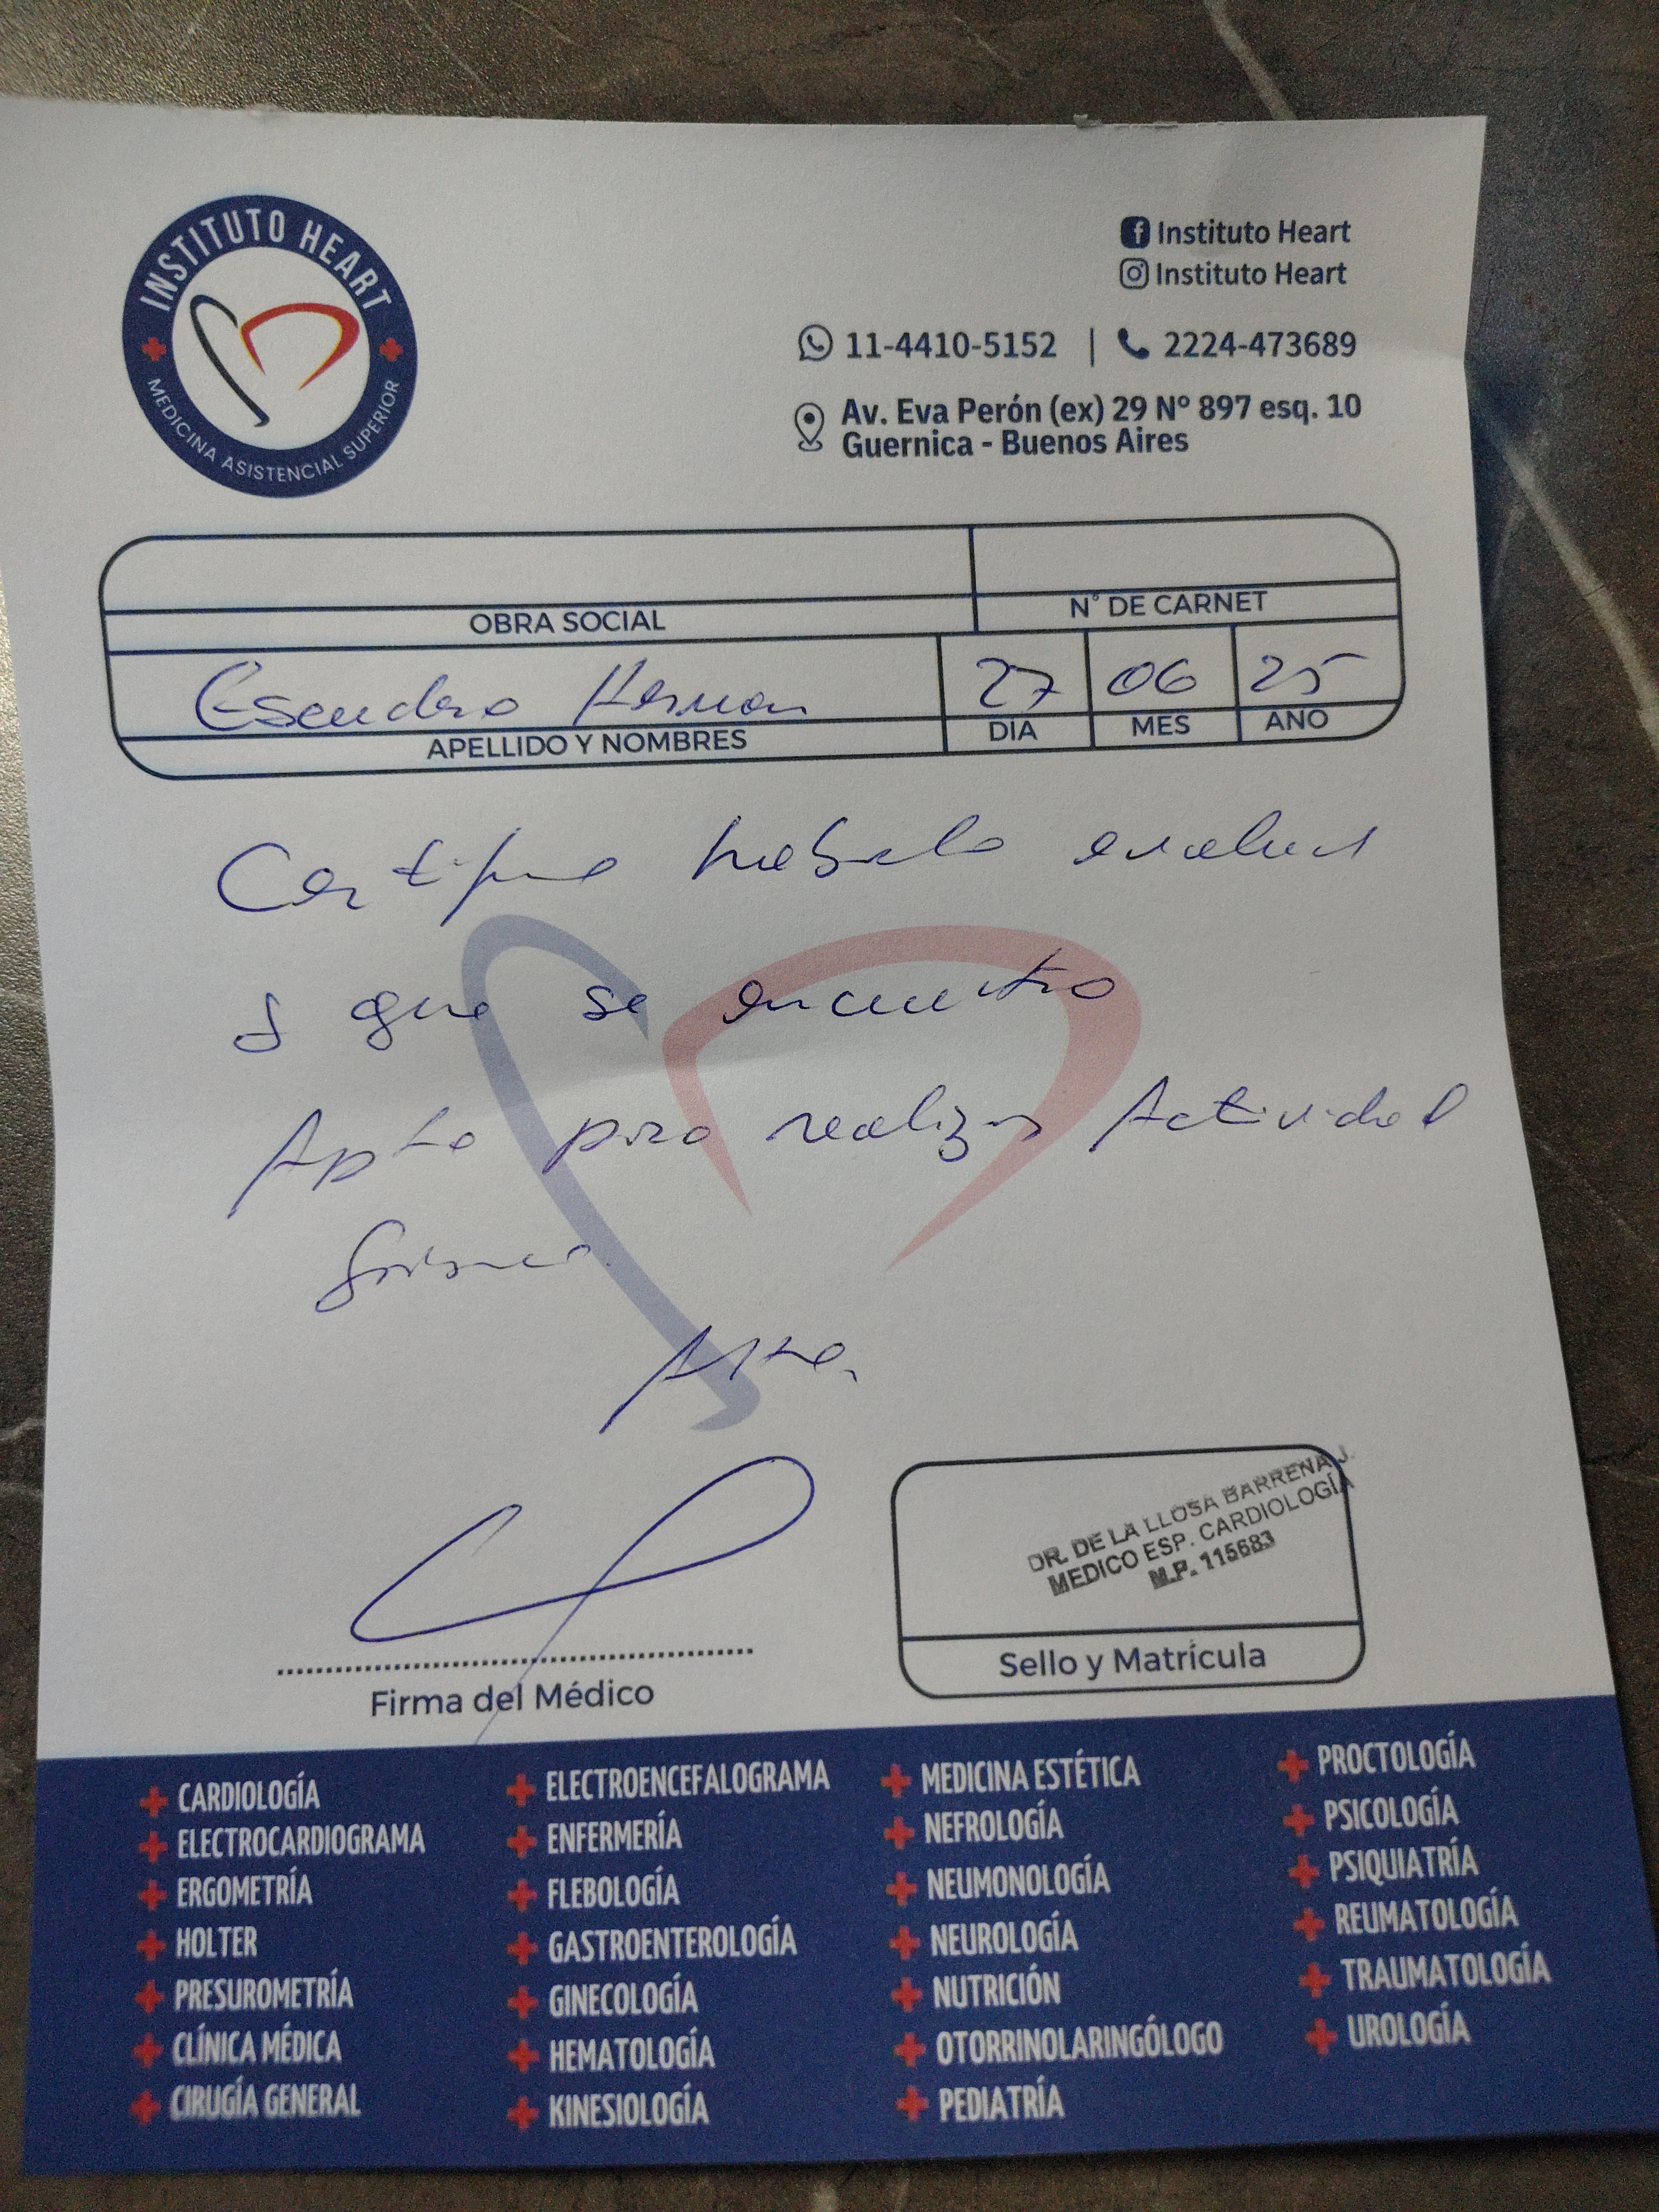 INSTITUTO HEART
MEDICINA ASISTENCIAL SUPERIOR
Instituto Heart
Instituto Heart
11-4410-5152 | 2224-473689
Av. Eva Perón (ex) 29 Nº 897 esq. 10
Guernica - Buenos Aires
OBRA SOCIAL
N° DE CARNET
Escudero Hernan
27 06 25
APELLIDO Y NOMBRES
DIA MES ANO
Certifico haberlo
y que se encuentra
Apto para realizar Actividad
física
DR. DE LA LLOSA BARRENA J.
MEDICO ESP. CARDIOLOGÍA
M.P. 115683
Firma del Médico
Sello y Matrícula
CARDIOLOGÍA
ELECTROCARDIOGRAMA
ERGOMETRÍA
HOLTER
PRESUROMETRÍA
CLÍNICA MÉDICA
CIRUGÍA GENERAL
ELECTROENCEFALOGRAMA
ENFERMERÍA
FLEBOLOGÍA
GASTROENTEROLOGÍA
GINECOLOGÍA
HEMATOLOGÍA
KINESIOLOGÍA
MEDICINA ESTÉTICA
NEFROLOGÍA
NEUMONOLOGÍA
NEUROLOGÍA
NUTRICIÓN
OTORRINOLARINGÓLOGO
PEDIATRÍA
PROCTOLOGÍA
PSICOLOGÍA
PSIQUIATRÍA
REUMATOLOGÍA
TRAUMATOLOGÍA
UROLOGÍA